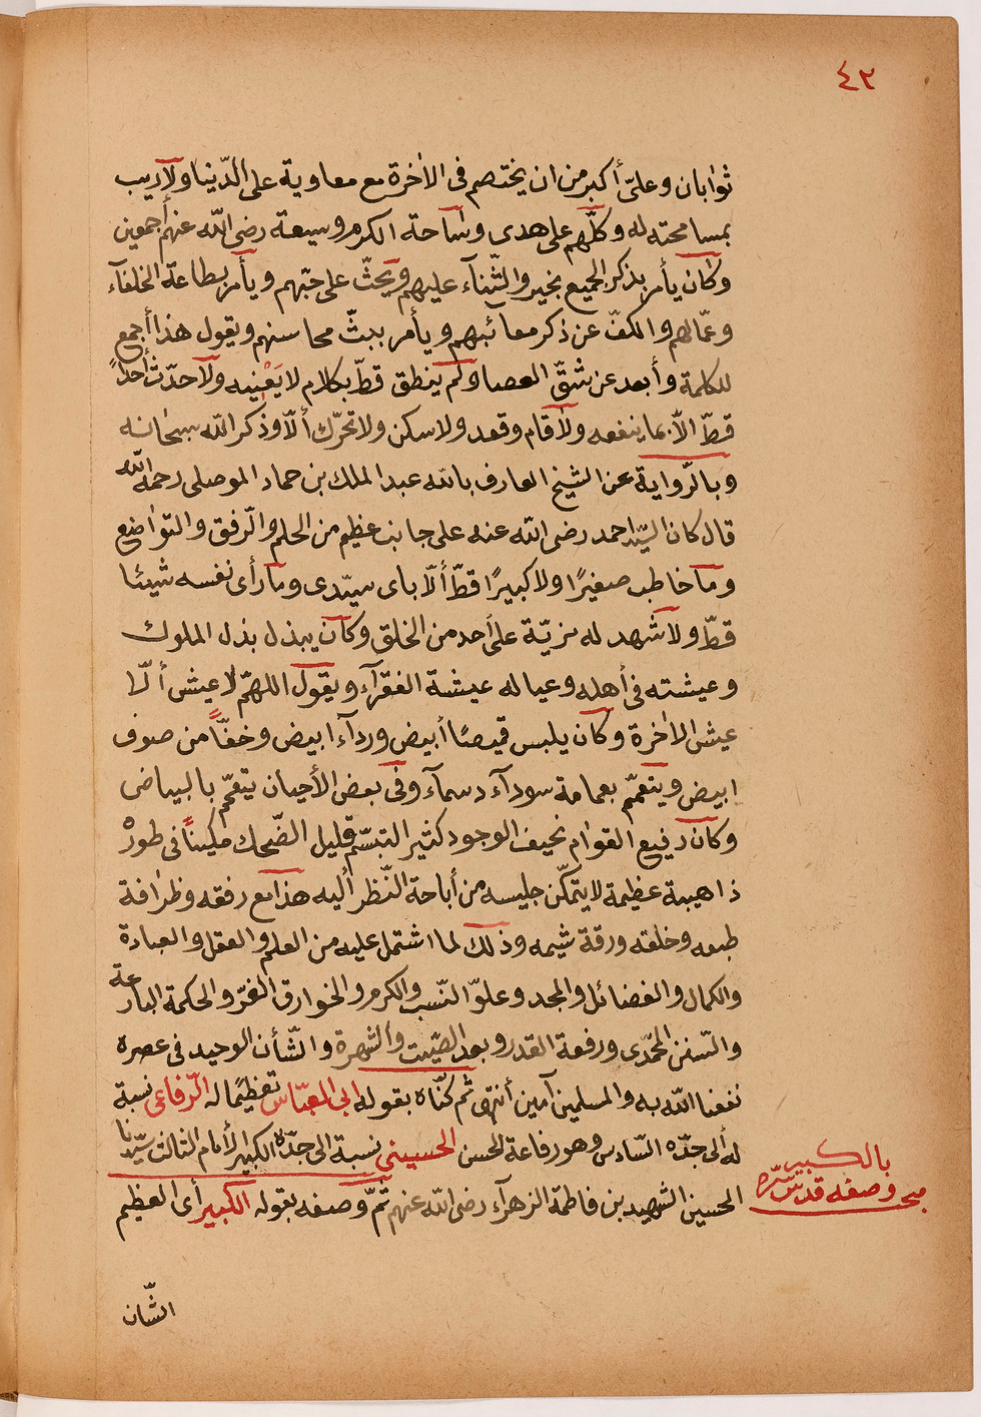 ٤٢
ثوابان وعلىّ أكبر من ان يختصم فى الاٰخرة مع معاوية على الدّنيا ولآريب
بمسامحته له وكلّهم على هدى وسٰاحة الكرم وسيعة رضى الله عنهم أجمعين
وكان يأمر بذكر الجميع بخير والثّنآء عليهم ويحثّ على حبّهم ويأمر بطاعة الخلفآء
وعمّالهم والكفّ عن ذكر معآئبهم ويأمر ببثّ محاسنهم ويقول هذا أجمع
للكلمة وأبعد عن شقّ العصا ولم ينطق قطّ بكلام لا يَعْنِيه ولآ حدّث أحدًا
قطّ الاّ بما ينفعه ولاٰ قام وقعد ولا سكن ولا تحرّك ألاّ وذكر الله سبحانه
وبالرّواية عن الشيخ العارف بالله عبد الملك بن حماد الموصلى رحمه الله
قال كان السّيّد احمد رضى الله عنه على جانب عظيم من الحلم والرّفق والتواضع
ومآ خاطب صغيرًا ولا كبيرًا قطّ ألاّ باى سيّدى ومآ رأى نفسه شيئا
قطّ ولآ شهد له مزيّة على أحد من الخلق وكآن يبذل بذل الملوك
وعيشته فى أهله وعياله عيشة الفقرآء ويقول اللهمّ لا عيش ألاّ
عيش الاٰخرة وكان يلبس قيصًا أبيض وردآء ابيض وخفّاً من صوف
ابيض ويتعمّم بعمامة سودآء دسمآء وفى بعض الأحيان يتعمّم بالبياض
وكان رفيع القوام نحيف الوجود كثير التبسّم قليل الضّحك مكيناً فى طوره
ذا هيبة عظيمة لا يتمكّن جليسه من أباحة النّظر أليه هذا مع رفقه وظرافة
طبعه وخلقه ورقة شيمه وذلك لما اشتمل عليه من العلم والعقل والعبادة
والكمال والفضائل والمجد وعلوّ النّسب والكرم والخوارق الغرّ والحكمة البارعة
والسّنن المحمّدى ورفعة القدر وبعد الصّيت والشّهرة والشّأن الوحيد فى عصره
نفعنا الله به والمسلمين آمين أنتهى ثم كنّاه بقوله ابى العبّاس تعظيمًا له الرّفاعى نسبة
له ألى جدّه السّادس وهو رفاعة الحسن الحسيني نسبة الى جدّه الكبير الأمام الثالث سيّدنا
الحسين الشهيد بن فاطمة الزهرآء رضى الله عنهم ثمّ وصفه بقوله الكبير أى العظيم
بالكبير
مبحث وصفه قدّس سرّه
الشّان